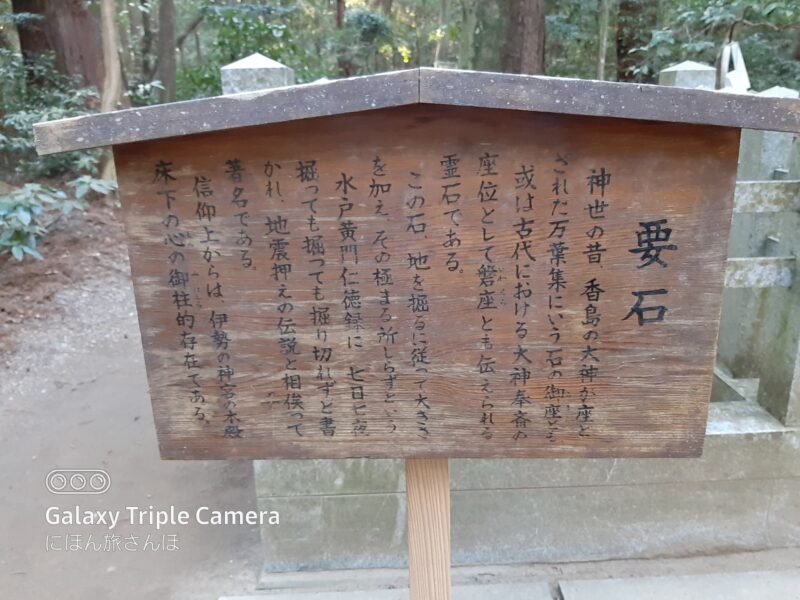 要石
神世の昔 香島の大神が座と
された万葉集にいう石の御座とも
或は古代における大神奉斎の
座位として磐座とも伝えられる
霊石である。
この石、地を掘るに従って大きさ
を加え、その極まる所しらずという
水戸黄門仁徳録に 七日七夜
掘っても掘っても掘り切れずと書
かれ、地震押えの伝説と相俟って
著名である。
信仰上からは、伊勢の神宮の本殿
床下の心の御柱的存在である。
Galaxy Triple Camera
にほん旅さんほ